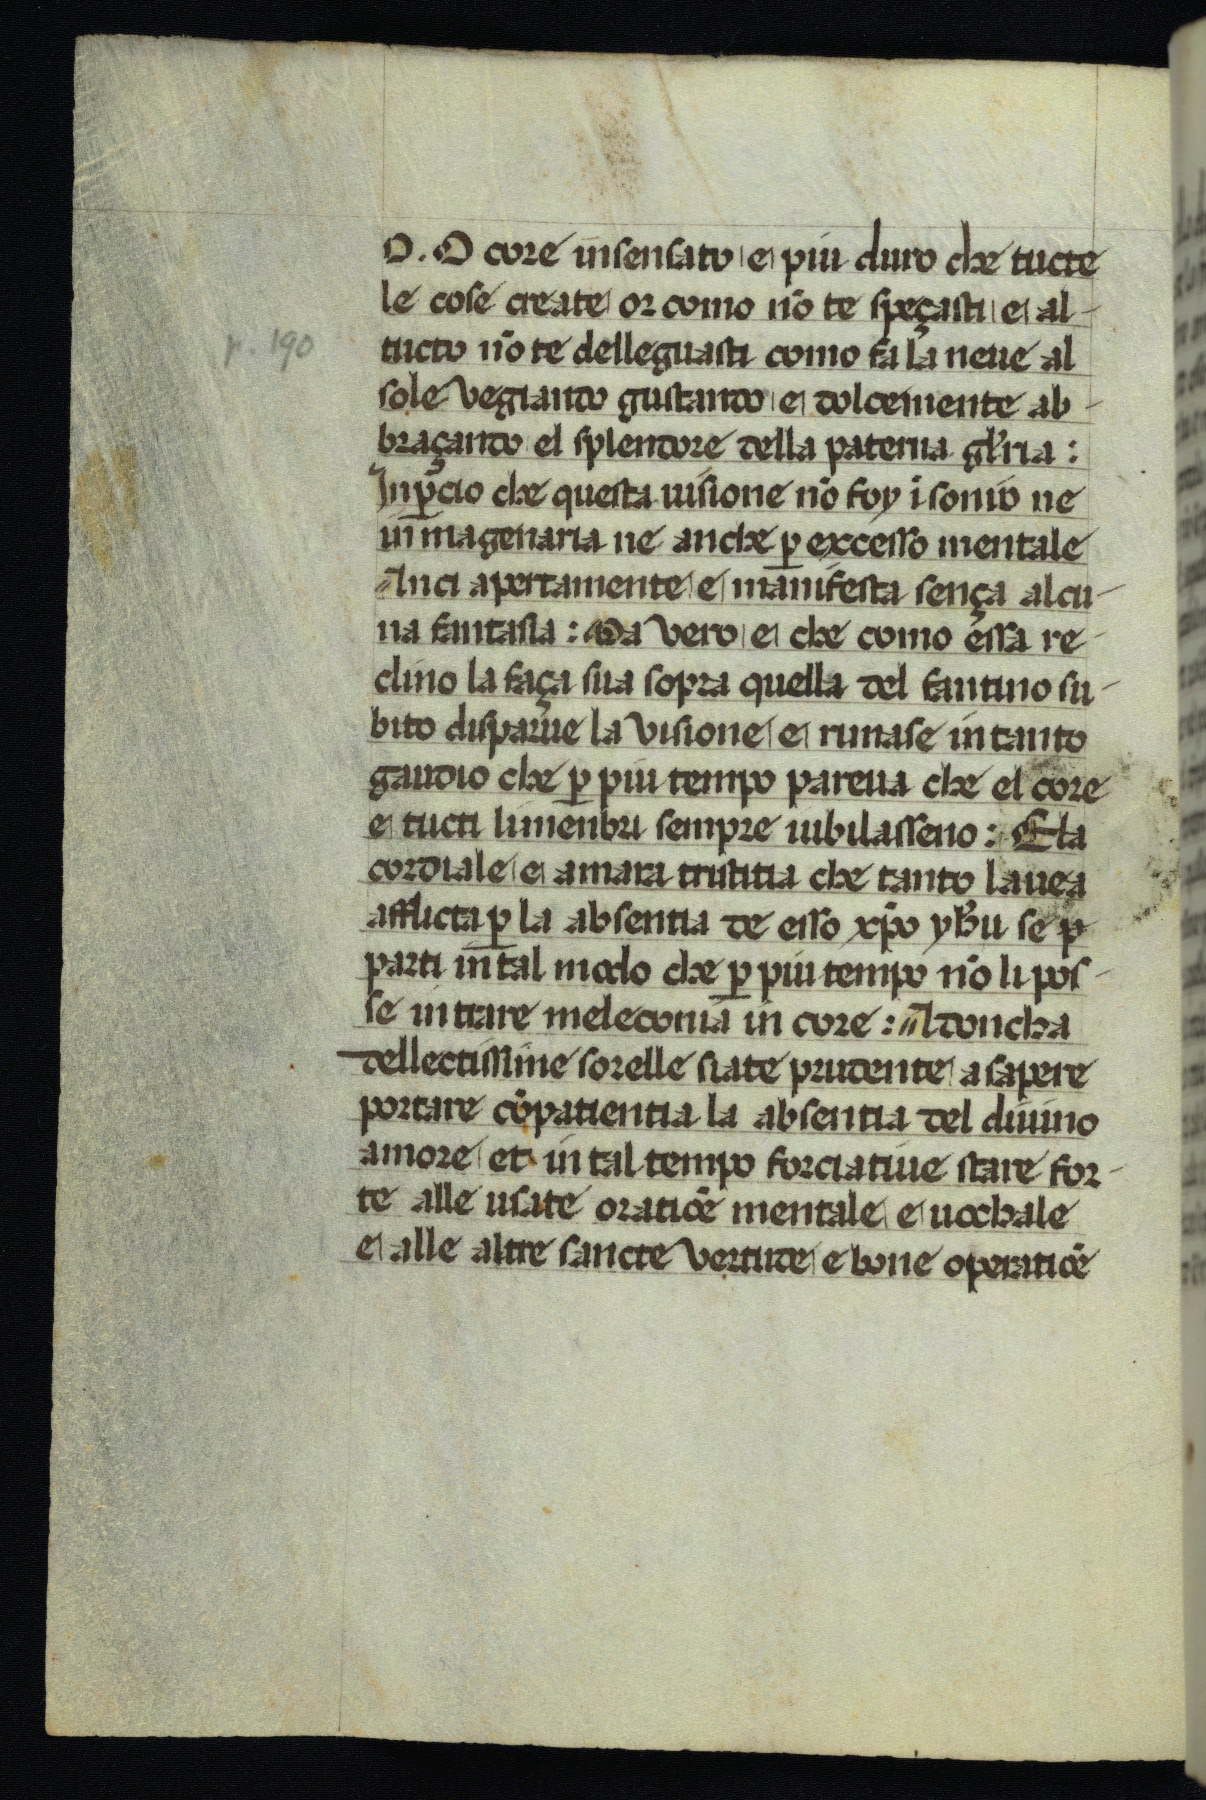 O. O core insensato e piu duro che tucte
le cose create or como nō te speçasti e al-
tucto nō te delleguasti como fa la neue al
sole vegiando gustando e dolcemente ab-
braçando el splendore della paterna gl'ria:
Inp̱cio che questa uisione nō foy ī sonno ne
in magenaria ne anche p̱ excesso mentale
Anci apertamente e manifesta sença alcu-
na fantasia: Da vero e che como essa re-
clino la faça sua sopra quella del fantino su-
bito disparue la visione e rimase in tanto
gaudio che p̱ piu tempo pareua che el core
e tucti li menbri sempre iubilasseno: E la
cordiale e amara tristitia che tanto lauea
afflicta p̱ la absentia de esso xp̄o yh̄u se p̱
parti in tal modo che p̱ piu tempo nō li pos-
se intrare meleconia in core: Adoncha
dellectissime sorelle siate prudente a sapere
portare cō patientia la absentia del diuino
amore et in tal tempo forciatiue stare for-
te alle usate oratiōe mentale e uochale
e alle altre sancte vertute e bone operatiōe
p. 190